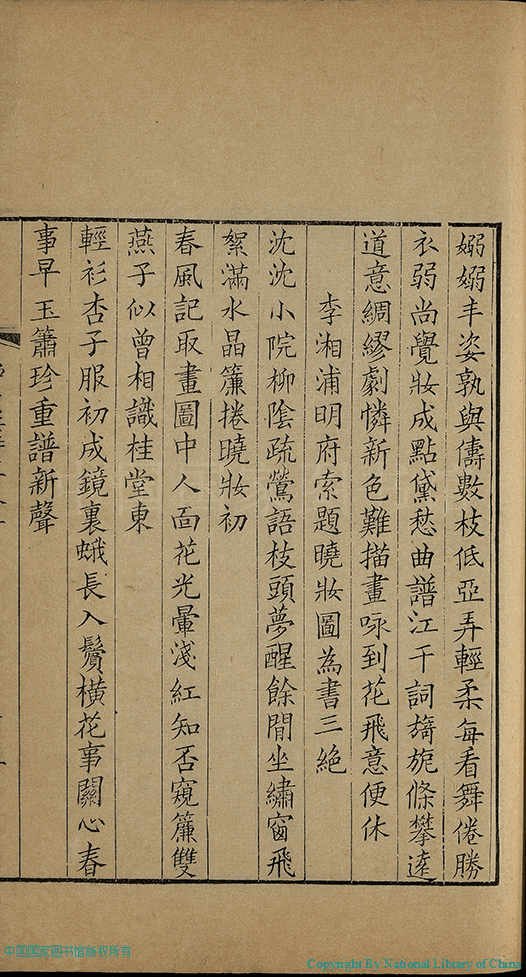 嫋嫋丰姿孰與儔數枝低亞弄輕柔每看舞倦勝
衣弱尚覺妝成點黛愁曲譜江干詞旖旎條攀遠
道意綢繆劇憐新色難描畫咏到花飛意便休
李湘浦明府索題曉妝圖為書三絶
沈沈小院柳陰疏鶯語枝頭夢醒餘閒坐繡窗飛
絮滿水晶簾捲曉妝初
春風記取畫圖中人面花光暈淺紅知否窺簾雙
燕子似曾相識桂堂東
輕衫杏子服初成鏡裏蛾長入鬢橫花事關心春
事早玉簫珍重譜新聲
中国国家图书馆版权所有
Copyright By National Library of China